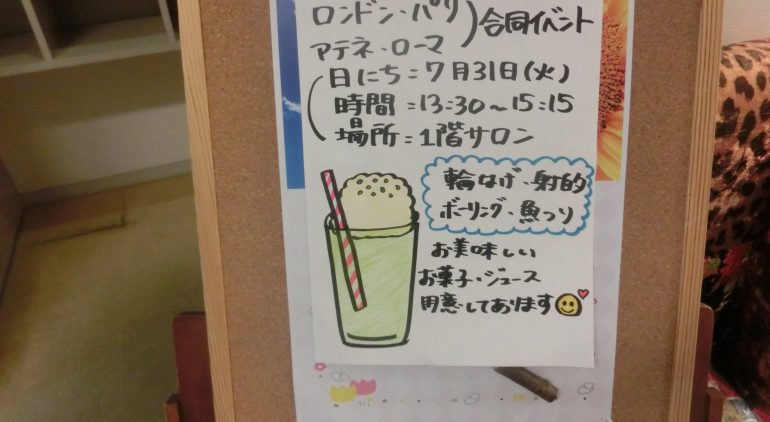 ロンドン・パリ
アテネ・ローマ
合同イベント
日にち:7月31日(火)
時間:13:30~15:15
場所:1階サロン
輪なげ・射的
ボーリング・魚つり
お美味しい
お菓子・ジュース
用意しております